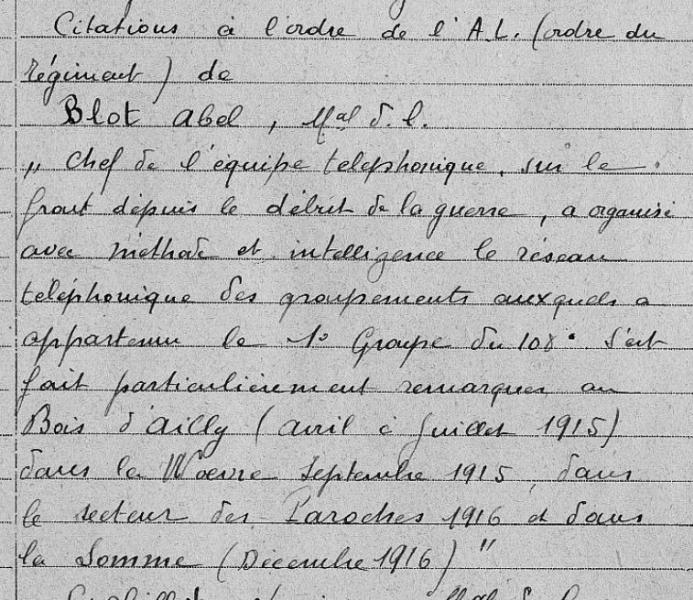 Citations à l'ordre de l'A.L. (ordre du
régiment) de
Blot Abel, Mal d. l.
" Chef de l'équipe telephonique, sur le
front dépuis le début de la guerre, a organisé
avec méthode et intelligence le réseau
teléphonique des groupements auxquels a
appartenu le 1° Groupe du 108° S'est
fait particulièrement remarquer au
Bois d'Ailly (avril à Juillet 1915)
dans la Woevre Septembre 1915, dans
le secteur des Paroches 1916 et dans
la Somme (Décembre 1916) "